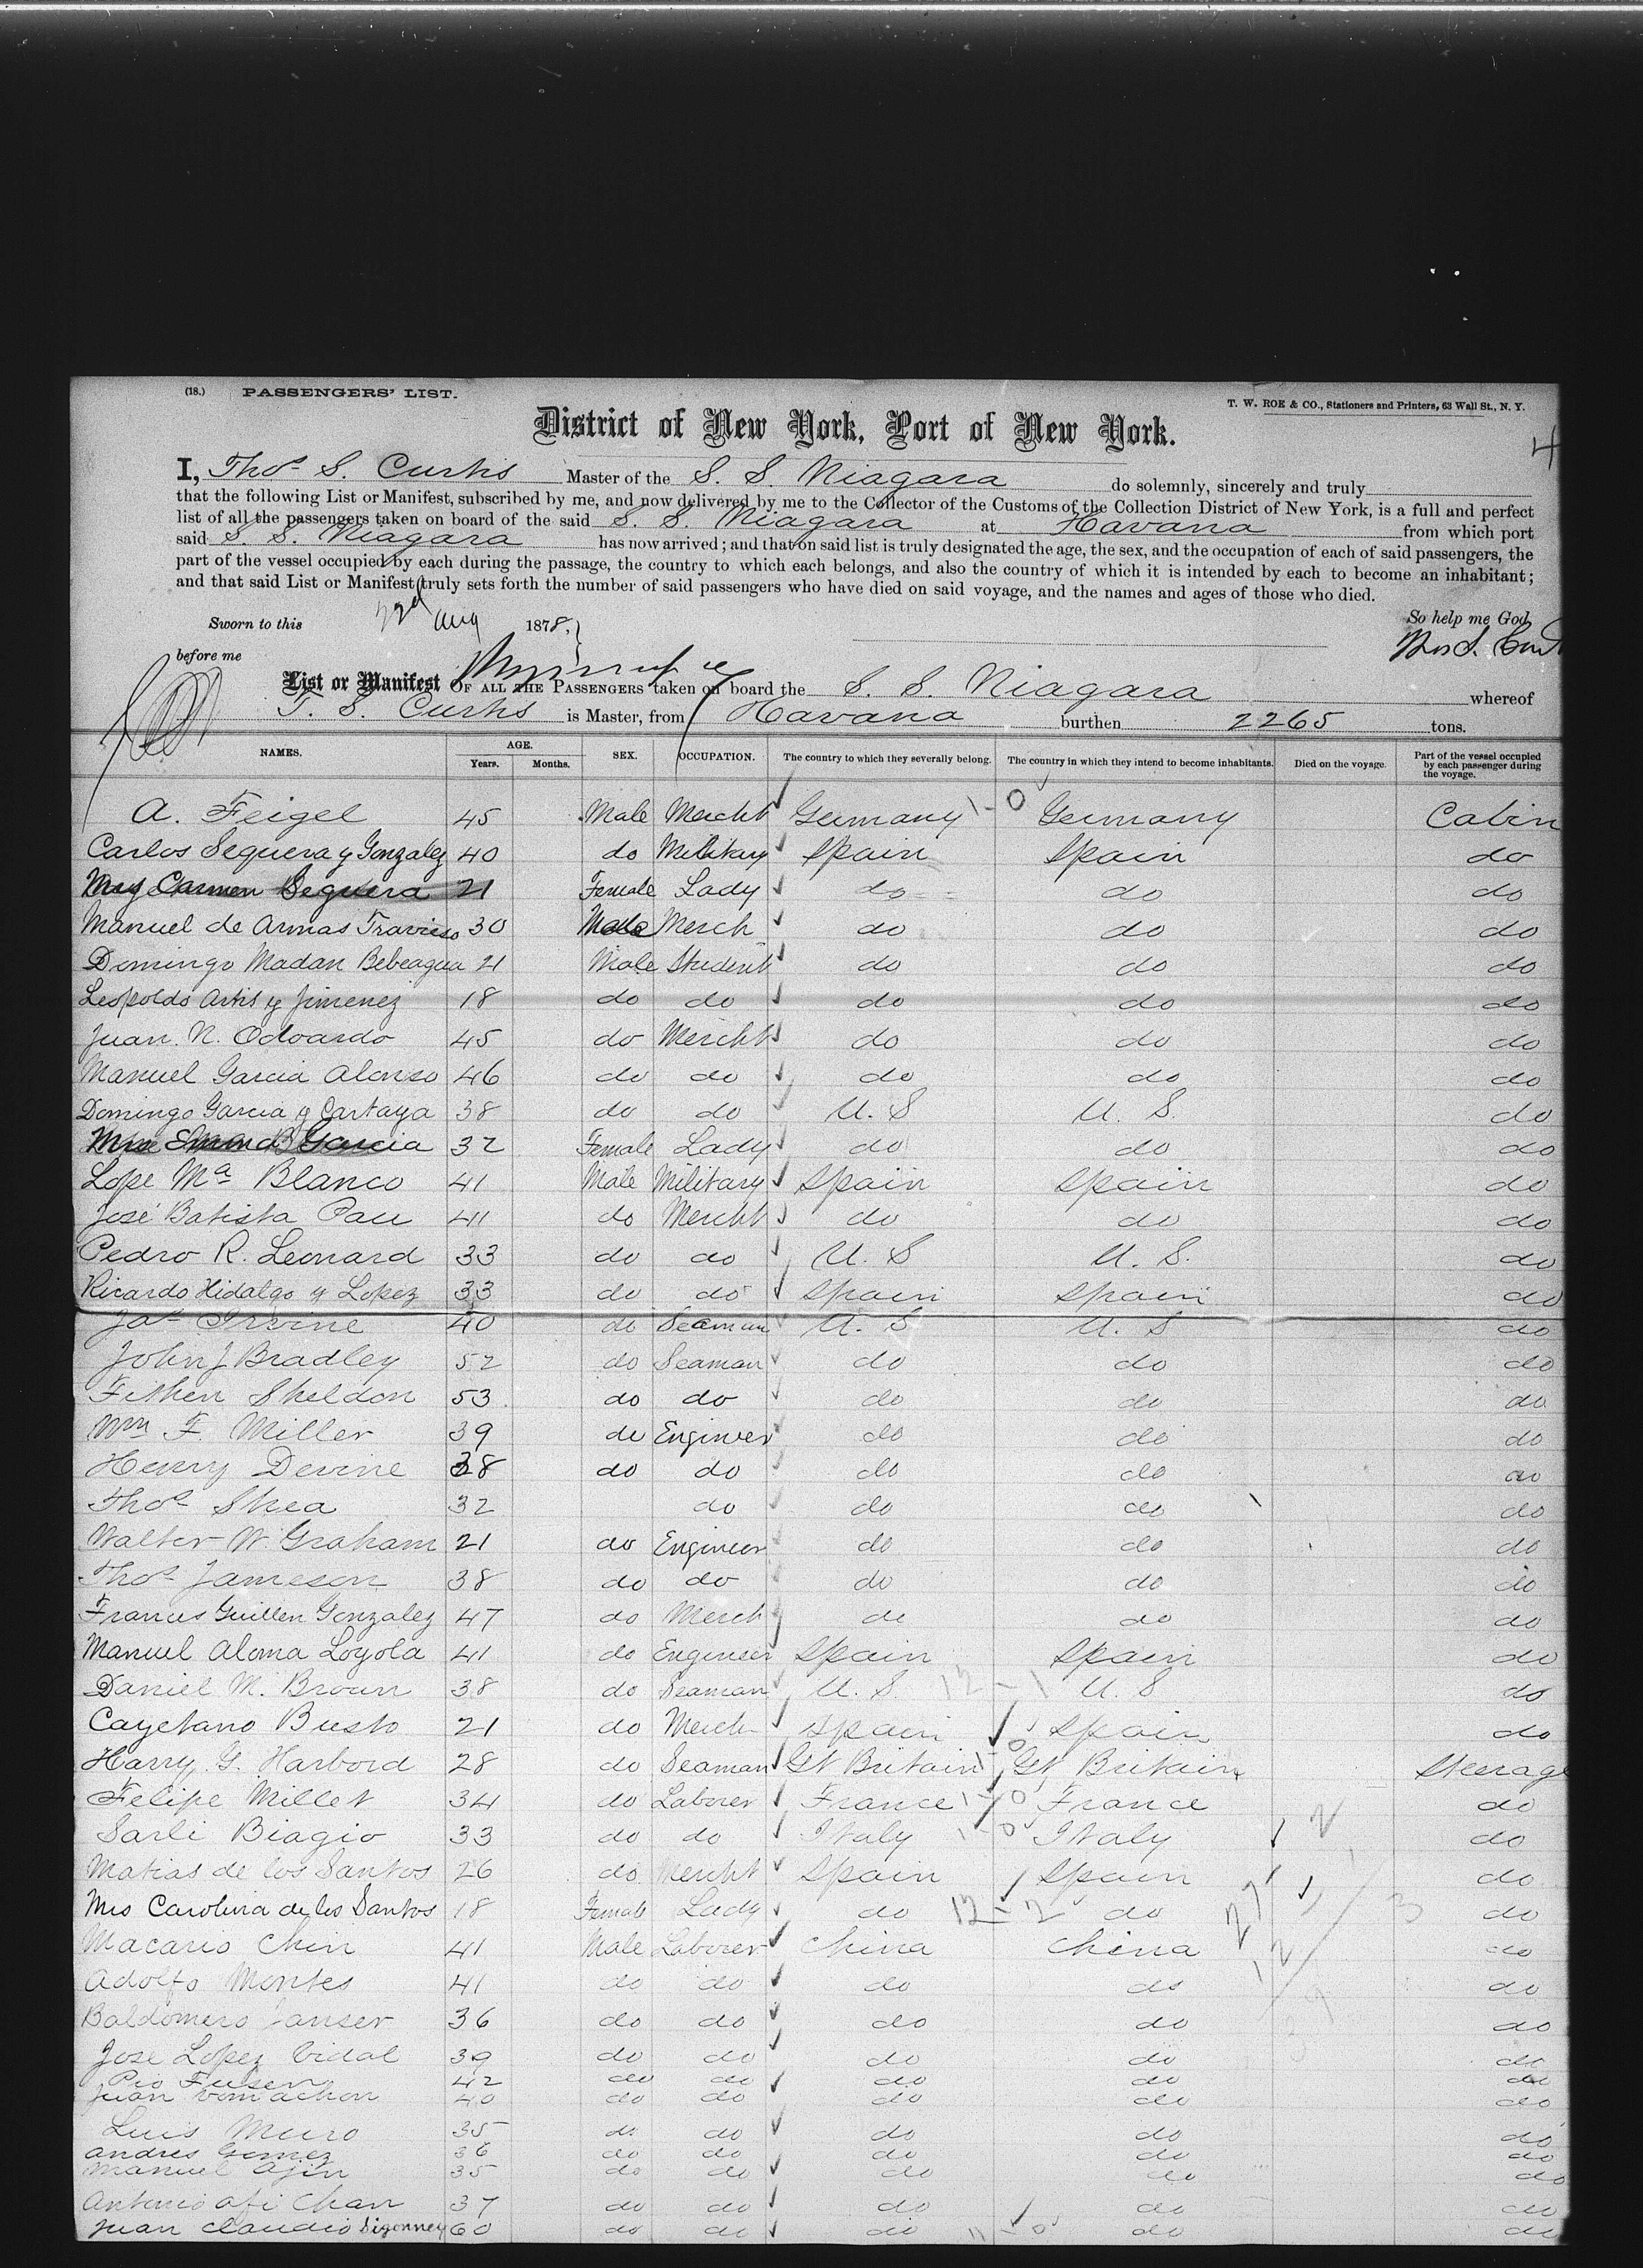 (18.) PASSENGERS' LIST.
T. W. ROE & CO., Stationers and Printers, 63 Wall St., N. Y.
District of New York, Port of New York.
4
I, Thos S. Curtis Master of the S. S. Niagara do solemnly, sincerely and truly
that the following List or Manifest, subscribed by me, and now delivered by me to the Collector of the Customs of the Collection District of New York, is a full and perfect
list of all the passengers taken on board of the said S. S. Niagara at Havana from which port
said S. S. Niagara has now arrived; and that on said list is truly designated the age, the sex, and the occupation of each of said passengers, the
part of the vessel occupied by each during the passage, the country to which each belongs, and also the country of which it is intended by each to become an inhabitant;
and that said List or Manifest truly sets forth the number of said passengers who have died on said voyage, and the names and ages of those who died.
So help me God,
Sworn to this 22d Aug 1878,
Thos S. Curt
before me
List or Manifest OF ALL THE PASSENGERS taken on board the S. S. Niagara whereof
T. S. Curtis is Master, from Havana burthen 2265 tons.
NAMES. AGE. Years. Months. SEX. OCCUPATION. The country to which they severally belong. The country in which they intend to become inhabitants. Died on the voyage. Part of the vessel occupied by each passenger during the voyage.
A. Feigel 45 Male Mercht Germany 1-0 Germany Cabin
Carlos Seguera y Gonzalez 40 do Military Spain Spain do
Carmen Seguera 21 Female Lady do do do
Manuel de Armas Travieso 30 Male Merch do do do
Domingo Madan Bebeagua 21 Male Student do do do
Leopoldo Artis y Jimenez 18 do do do do do
Juan. N. Odoardo 45 do Mercht do do do
Manuel Garcia Alonso 46 do do do do do
Domingo Garcia y Cartaya 38 do do U. S U. S. do
Garcia 32 Female Lady do do do
Lope Ma Blanco 41 Male Military Spain Spain do
José Batista Pau 41 do Mercht do do do
Pedro R. Leonard 33 do do U. S U. S. do
Ricardo Hidalgo y Lopez 33 do do Spain Spain do
Jas Irvine 40 do Seaman U. S U. S do
John J Bradley 52 do Seaman do do do
Sheldon 53 do do do do do
Wm F. Miller 39 do Engineer do do do
Henry Devine 38 do do do do do
Thos Shea 32 do do do do
Walter W. Graham 21 do Engineer do do do
Thos Jameson 38 do do do do do
Francis Guillen Gonzalez 47 do Merch do do do
Manuel Aloma Loyola 41 do Engineer Spain Spain do
Daniel M. Brown 38 do Seaman U. S 12-1 U. S do
Cayetano Busto 21 do Merch Spain Spain do
Harry G. Harbord 28 do Seaman Gt Britain Gt Britain Steerage
Felipe Millet 34 do Laborer France 1-0 France do
Sarli Biagio 33 do do Italy 1-0 Italy 2 do
Matias de los Santos 26 do Mercht Spain Spain do
Mrs Carolina de los Santos 18 Female Lady do 12-2 do do
Macario Chin 41 Male Laborer China China do
Adolfo Montes 41 do do do do do
Baldomero 36 do do do do do
Jose Lopez Vidal 39 do do do do do
Pio 42 do do do do do
Juan 40 do do do do do
Luis Muro 35 do do do do do
Andres Gomez 36 do do do do do
Manuel Ajin 35 do do do do do
Antonio Chan 37 do do do do do
Juan Claudio 60 do do do 11-0 do do